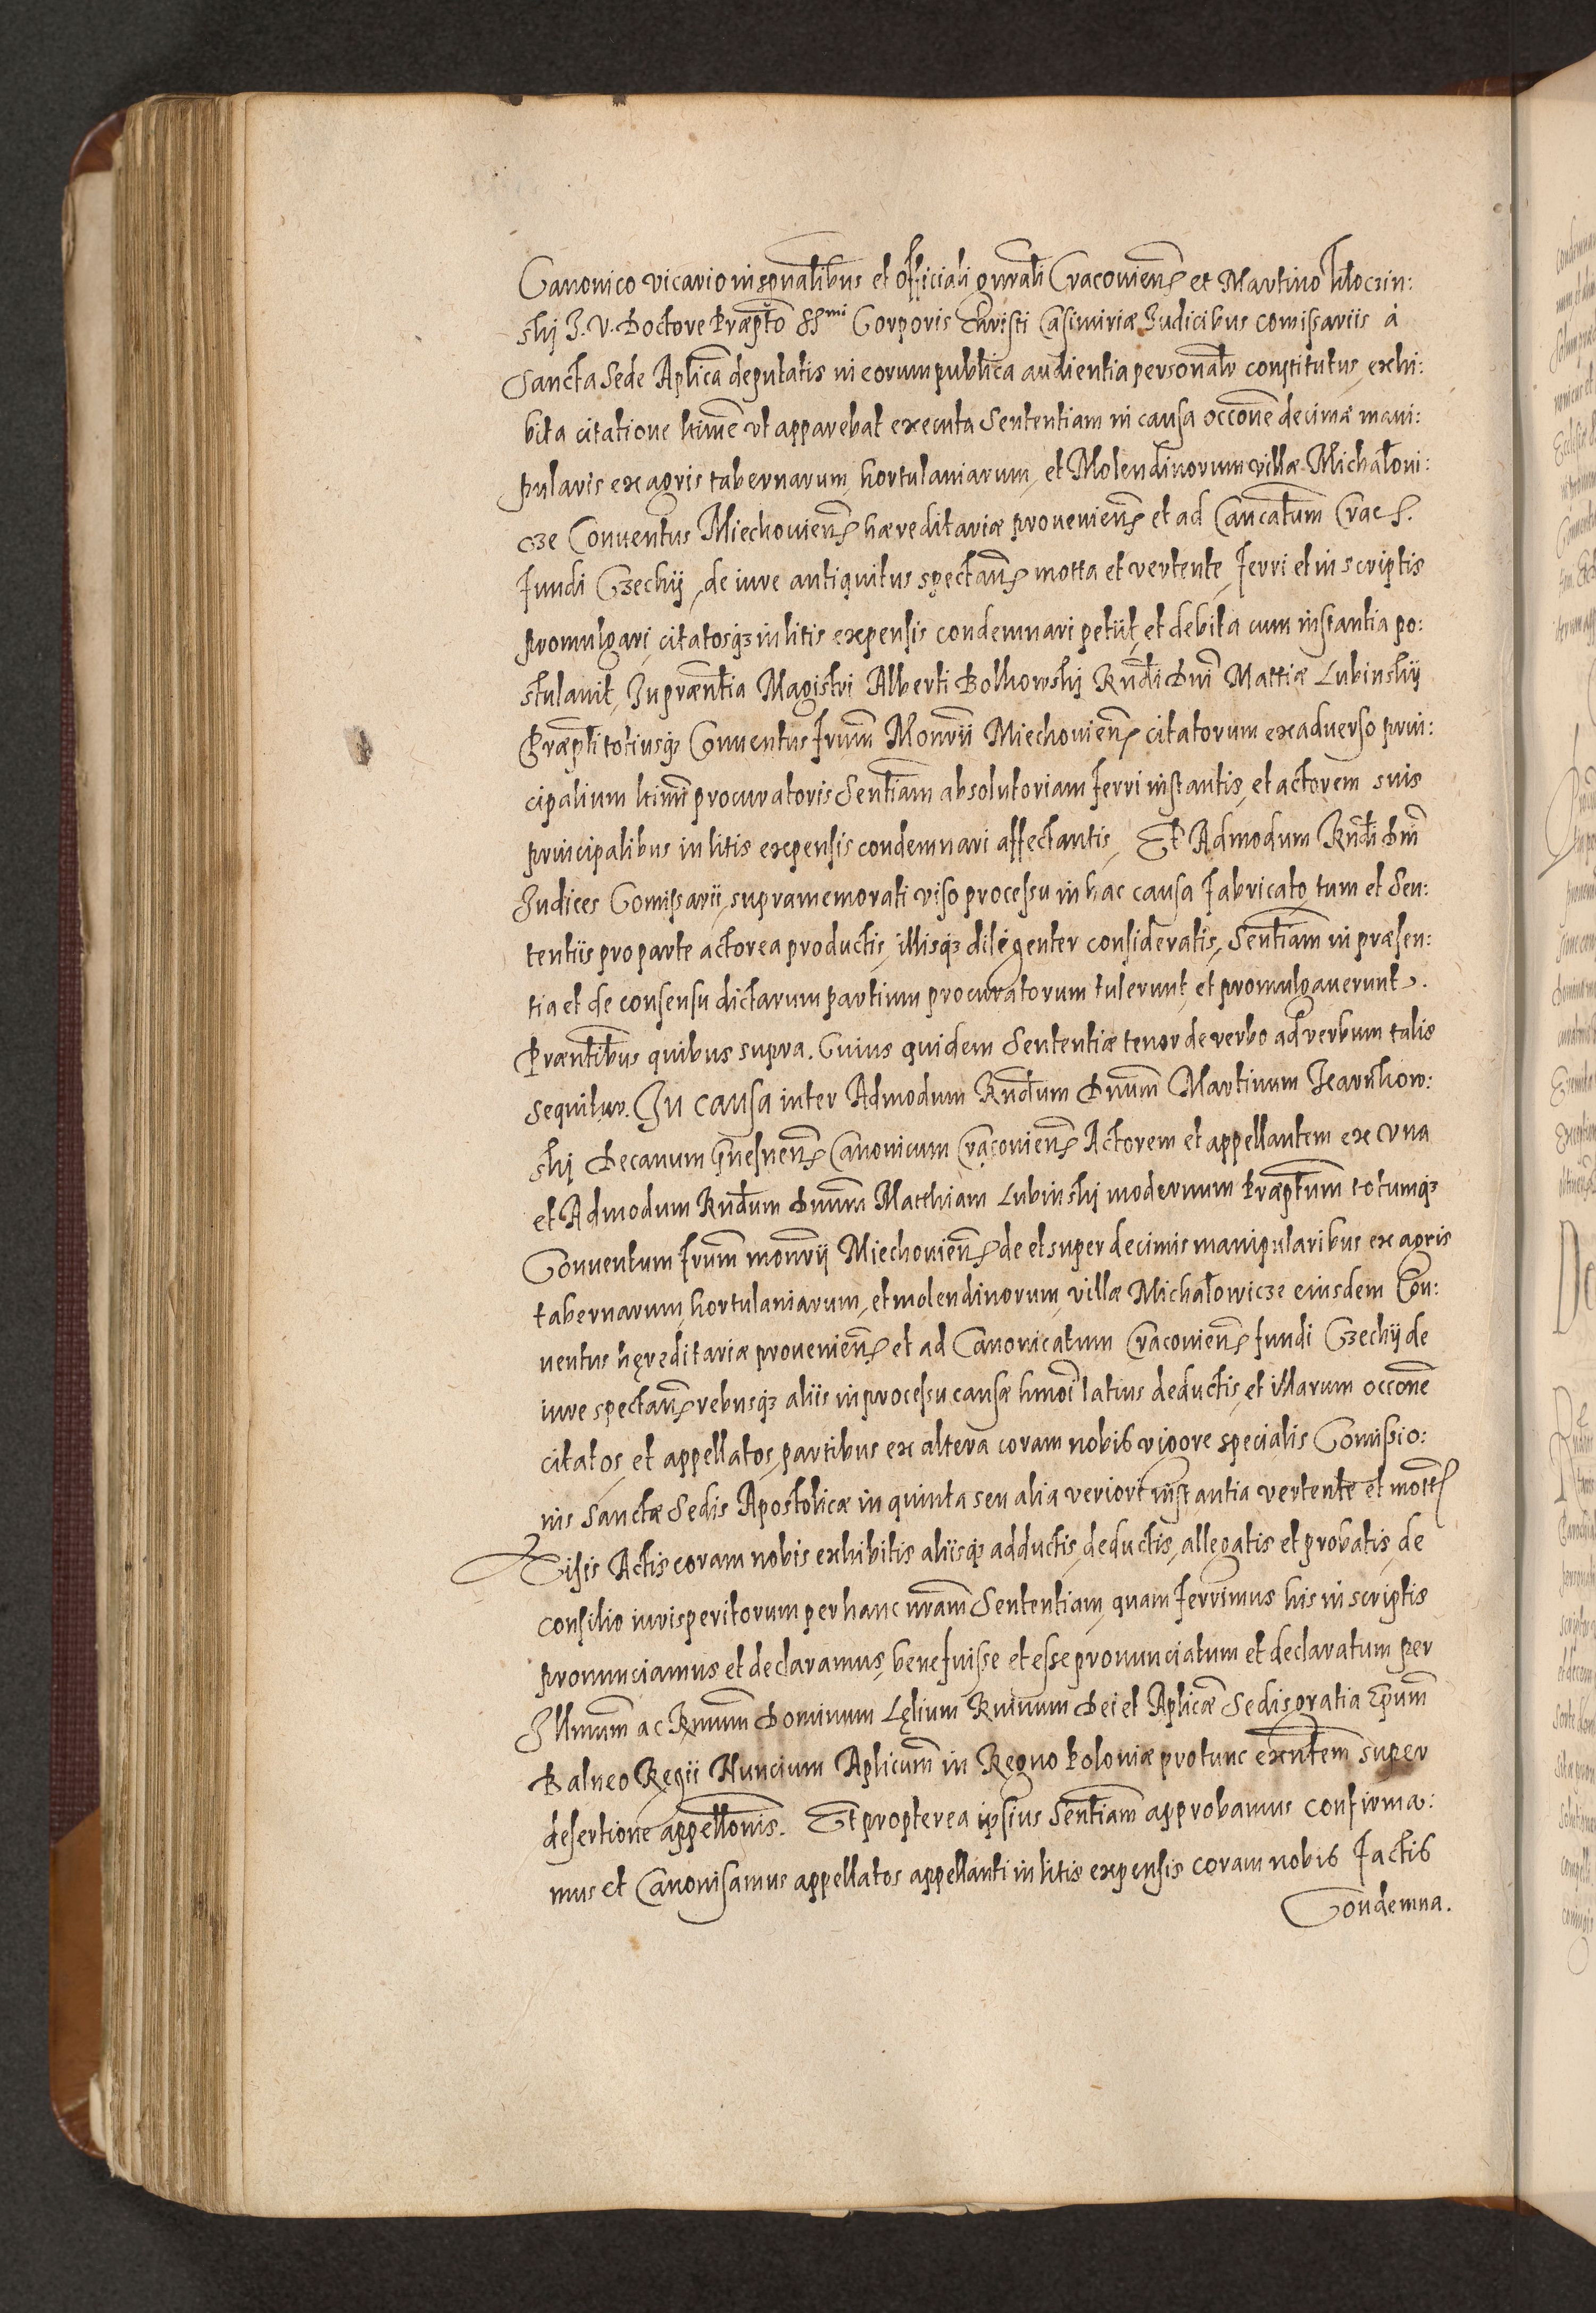 Canonico vicario in spũalibus et officiali gnrali Cracovieñ et Martino Kłoczin:
skij I. V. Doctore Præpto SSmi Corporis Christi Casimiriæ Iudicibus comissariis à
Sancta Sede Aplica deputatis in eorum publica audientia personalr constitutus, exhi:
bita citatione ltime vt apparebat executa Sententiam in causa occone decimæ mani:
pularis ex agris tabernarum, hortulaniarum, et Molendinorum villæ Michałoui:
cze Conuentus Miechouien hæreditariæ prouenien et ad Cancatum Crac
fundi Czechij, de iure antiquitus spectan motta et vertente, ferri et in scriptis
promulgari, citatosq3 in litis expensis condemnari petiit, et debita cum instantia po:
stulauit, In præntia Magistri Alberti Bolkowskij Rndi Dni Mattiæ Lubinskij
Præpti totiusq3 Conuentus frum Monrii Miechouien citatorum ex aduerso prin:
cipalium ltimi procuratoris Sentiam absolutoriam ferri instantis, et actorem suis
principalibus in litis expensis condemnari affectantis, Et Admodum Rndi Dni
Iudices Comissarii, supramemorati viso processu in hac causa fabricato, tum et Sen:
tentiis pro parte actorea productis, illisq3 diligenter consideratis, Sentiam in præsen:
tia et de consensu dictarum partium procuratorum tulerunt, et promulgauerunt.
Præntibus quibus supra. Cuius quidem Sententiæ tenor de verbo ad verbum talis
sequitur. In causa inter Admodum Rndum Dnum Martinum
skij Decanum Gnesnen Canonicum Cracouien Actorem et appellantem ex vna
et Admodum Rndum Dnum Matthiam Lubinskij modernum Præptum totumq3
Conuentum frum monrij Miechouien de et super decimis manipularibus ex agris
tabernarum, hortulaniarum, et molendinorum, villæ Michałowicze eiusdem Con:
uentus hęreditariæ prouenien et ad Canonicatum Cracouien fundi Czechij de
iure spectan rebusq3 aliis in processu causæ hmoi latius deductis, et illarum occone
citatos, et appellatos, partibus ex altera coram nobis vigore specialis Comissio:
nis Sanctæ Sedis Apostolicæ in quinta seu alia veriori instantia vertente et mott
Visis Actis coram nobis exhibitis aliisq3 adductis, deductis, allegatis et probatis, de
consilio iurisperitorum per hanc nram Sententiam, quam ferrimus his in scriptis
pronunciamus et declaramus, bene fuisse et esse pronunciatum et declaratum per
Illmum ac Rmum Dominum Lęlium Ruinum Dei et Aplicæ Sedis gratia Epum
Balneo Regii Nuncium Aplicum in Regno Poloniæ pro tunc exntem super
desertione appellonis. Et propterea ipsius Sentiam approbamus confirma:
mus et Canonisamus appellatos appellanti in litis expensis coram nobis factis
Condemna.